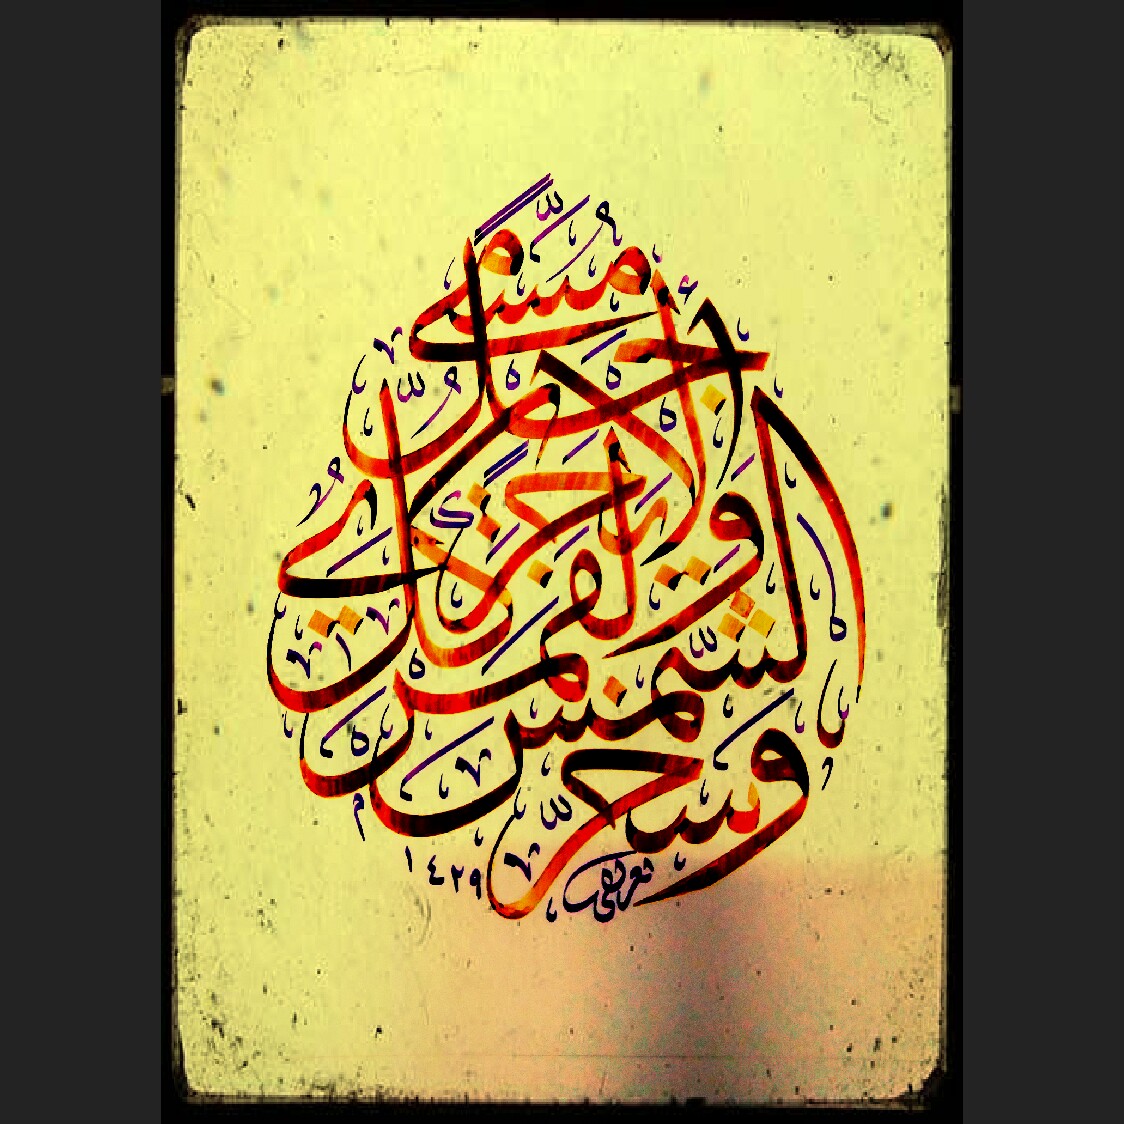 وَسَخَّرَ الشَّمْسَ وَالْقَمَرَ كُلٌّ يَجْرِي لِأَجَلٍ مُسَمًّى
١٤٢٩